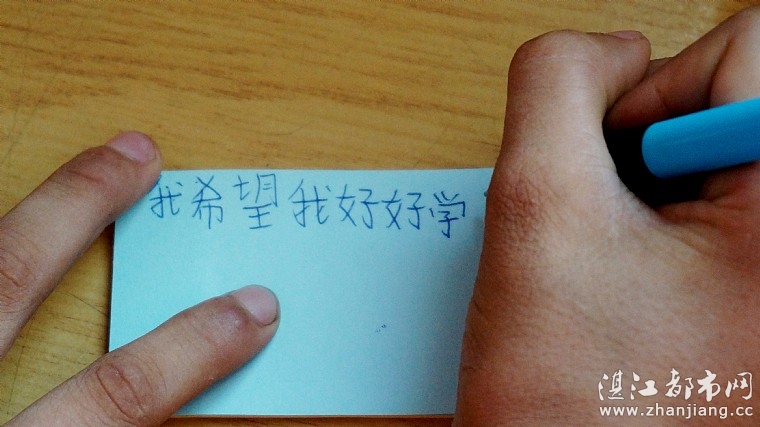 我希望我好好学
湛江都市网
www.zhanjiang.cc